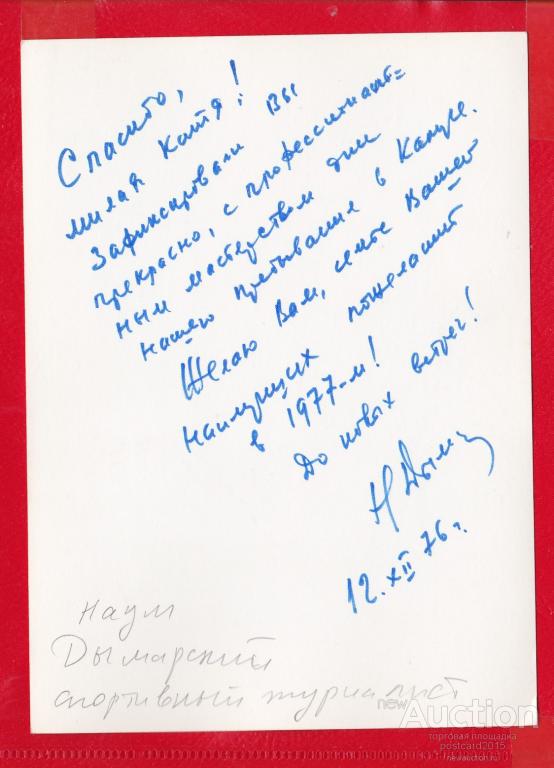 Спасибо,
милая Катя!
Зафиксировали Вы
прекрасно, с профессиональ=
ным мастерством дни
нашего пребывания в Калуге.
Желаю Вам, семье Вашей
наилучших пожеланий
в 1977-м!
До новых встреч!
Н Дым
12.XII 76 г.
Наум
Дымарский
спортивный журналист
newAuction
торговая площадка
postcard2015
newauction.ru